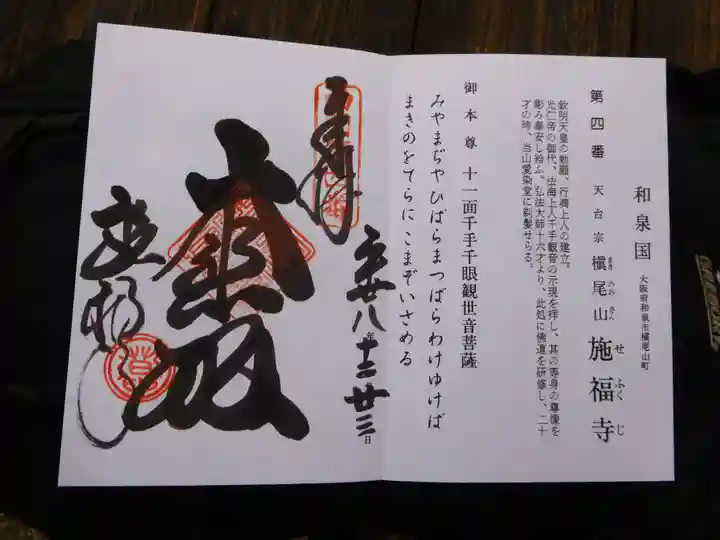 和泉国 大阪府和泉市槇尾山町
第四番 天台宗 槇尾山 施福寺
まき のお さん せ ふく じ
欽明天皇の勅願、行満上人の建立。
光仁帝の御代、法海上人千手観音の示現を拝し、其の等身の尊像を
彫み奉安し給ふ。弘法大師十六才より、此処に佛道を研修し、二十
才の時、当山愛染堂に剃髪せらる。
御本尊 十一面千手千眼観世音菩薩
みやまぢやひばらまつばらわけゆけば
まきのをてらにこまぞいさめる
奉拝
廿八年十二廿三日
大悲殿
施福寺